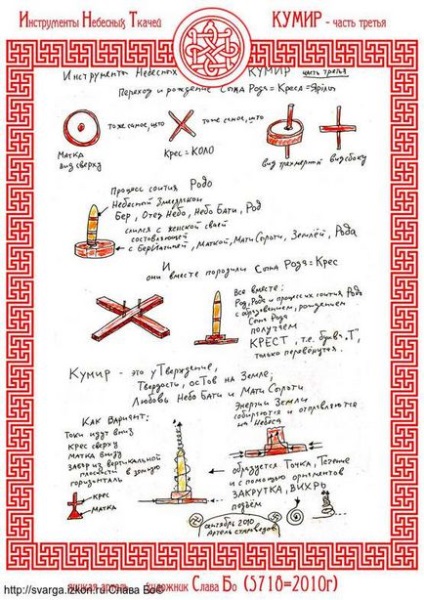 Инструменты Небесных Ткачей КУМИР - часть третья
Инструменты Небесных КУМИР часть третья
Переход и рождение Сына Рода = Креса =
Матка вид сверху
тоже самое, что
Крес = КОЛО
тоже самое, что
вид трехмерный вид сбоку
Процесс соития Родо
Небесной
Бер, Отец Небо, Небо Бати, Род
слился с женской своей
составляющей
с Маткой, Мати Сырыти, Землёй, Рода
И
они вместе породили Сына Рода = Крес
Все вместе:
Род, Родо и процесс их соития Родо
с образованием, рождением
Сына Рода
получаем
КРЕСТ, т.е. буква „Т",
только перевёрнутая.
Кумир - это уТверждение,
Твердость, осТов на Земле;
Любовь Небо Бати и Мати Сырыти
Энергии Земли
собираются и отправляются
на Небеса
Как Вариант:
Токи идут вниз
крес сверху
матка внизу
из вертикальной
плоскости в
горизонталь
крес
матка
образуется Точка, Течение
и с помощью орнаментов
ЗАКРУТКА, ВИХРЬ
подъём
сентябрь 2010
Артель
художник Слава Бо (5718=2010г)
http://svarga.izkon.ru Слава Бо©